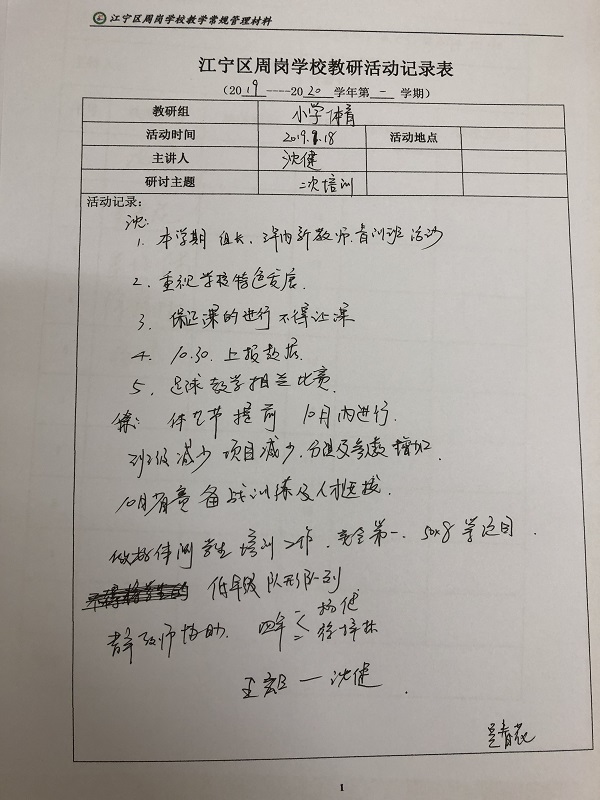 江宁区周岗学校教学常规管理材料
江宁区周岗学校教研活动记录表
(2019----2020 学年第一 学期)
教研组 小学体育
活动时间 2019.9.18 活动地点
主讲人 沈健
研讨主题 二次培训
活动记录:
沈:
1. 本学期 组长、3年内新教师、青训班 活动
2. 重视学校特色发展.
3. 保证课的进行 不得让课
4. 10.30. 上报数据.
5. 足球教学相关比赛.
体艺节提前 10月内进行.
班级减少 项目减少.
10月省赛 备战训练及人材选拔.
做好体测学生培训工作. 安全第一. 50×8
低年级 队形队列
教师协助. 四年 < 杨健
王宏旦 — 沈健.
1